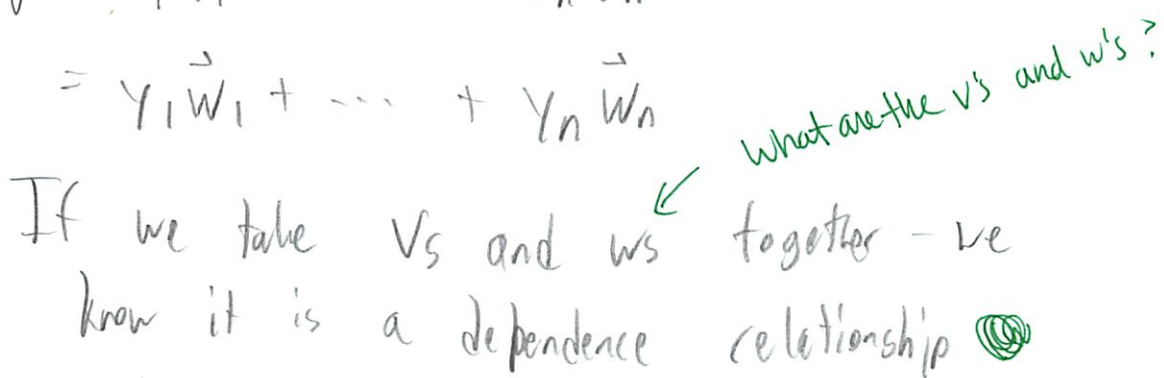 = y₁w⃗₁ + ... + yₙw⃗ₙ
What are the v's and w's?
If we take Vs and ws together - we
know it is a dependence relationship